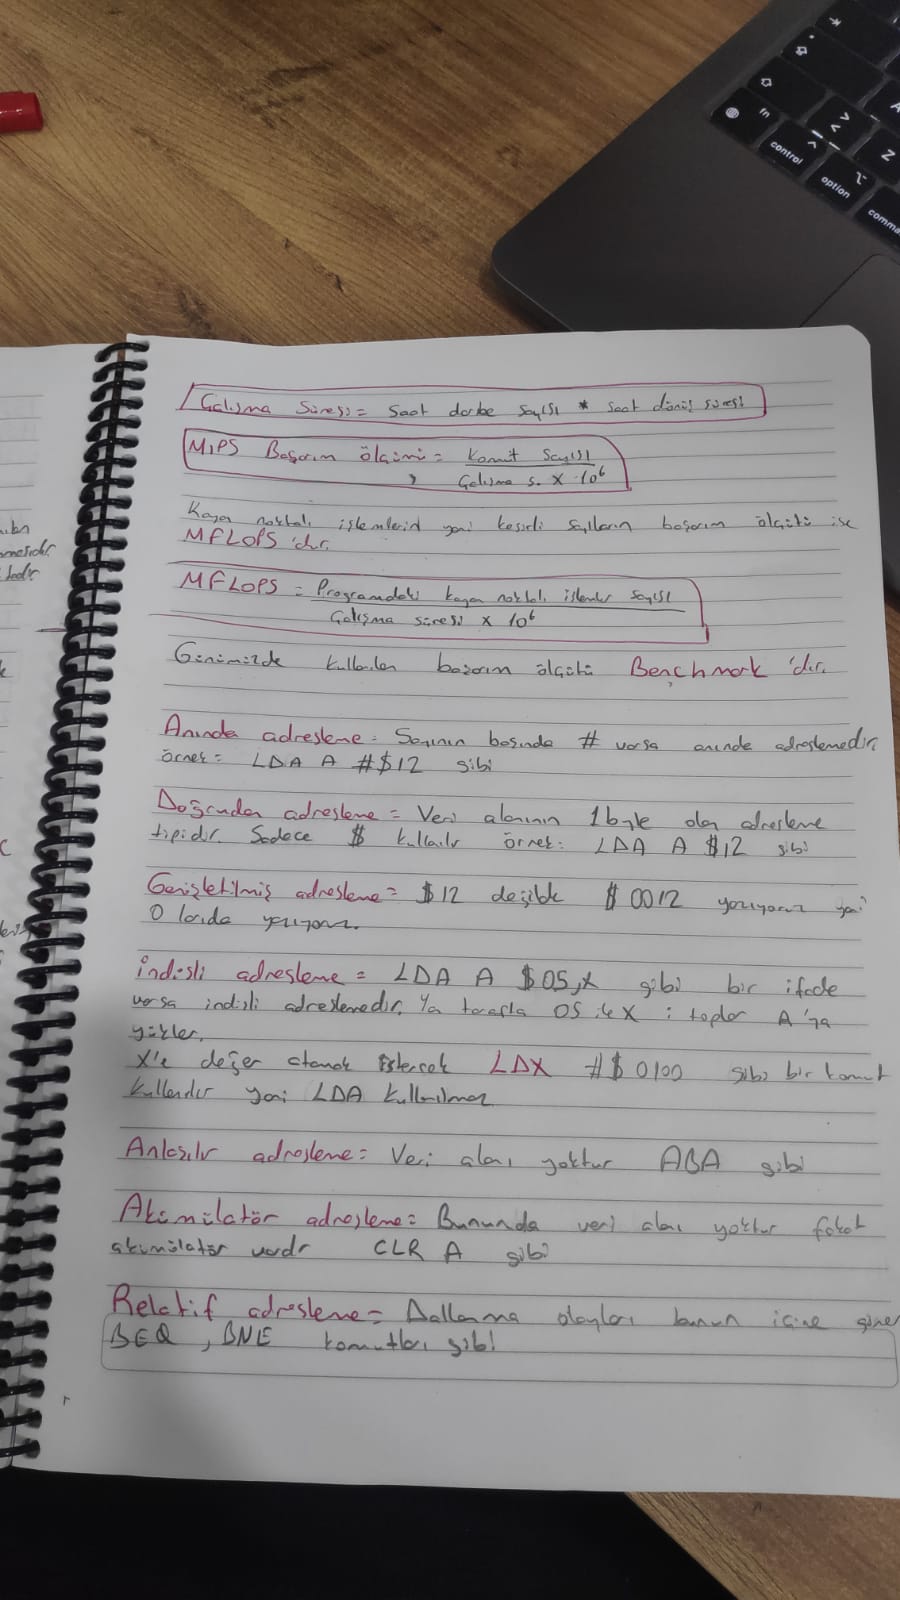 Çalışma Süresi = Saat darbe sayısı * saat dönüş süresi
MIPS Başarım ölçimi = Komut Sayısı
Çalışma s. X 10⁶
Kayan noktalı işlemlerid yani kesirli sayıların başarım ölçütü ise
MFLOPS 'dır.
MFLOPS = Programdaki kayan noktalı işlemler sayısı
Çalışma süresi x 10⁶
Günümüzde kullanılan başarım ölçütü Benchmark 'dır.
Anında adresleme = Sayının başında # varsa anında adreslemedir.
örnek = LDA A #$12 gibi
Doğrudan adresleme = Veri alanının 1 byte olan adresleme
tipidir. Sadece $ kullanılır örnek: LDA A $12 gibi
Genişletilmiş adresleme = $12 değilde $0012 yazıyoruz yani
0 larıda yazıyoruz.
İndisli adresleme = LDA A $05,X gibi bir ifade
varsa indisli adreslemedir. Ya tarafta 05 ile X i toplar A'ya
yükler.
X'e değer atamak istersek LDX #$0100 gibi bir komut
kullanılır yani LDA kullanılmaz
Anlaşılır adresleme = Veri alanı yoktur ABA gibi
Akümülatör adresleme = Bununda veri alanı yoktur fakat
akümülatör vardır CLR A gibi
Relatif adresleme = Dallanma olayları bunun içine girer
BEQ, BNE komutları gibi
control
option
fn
Z
A